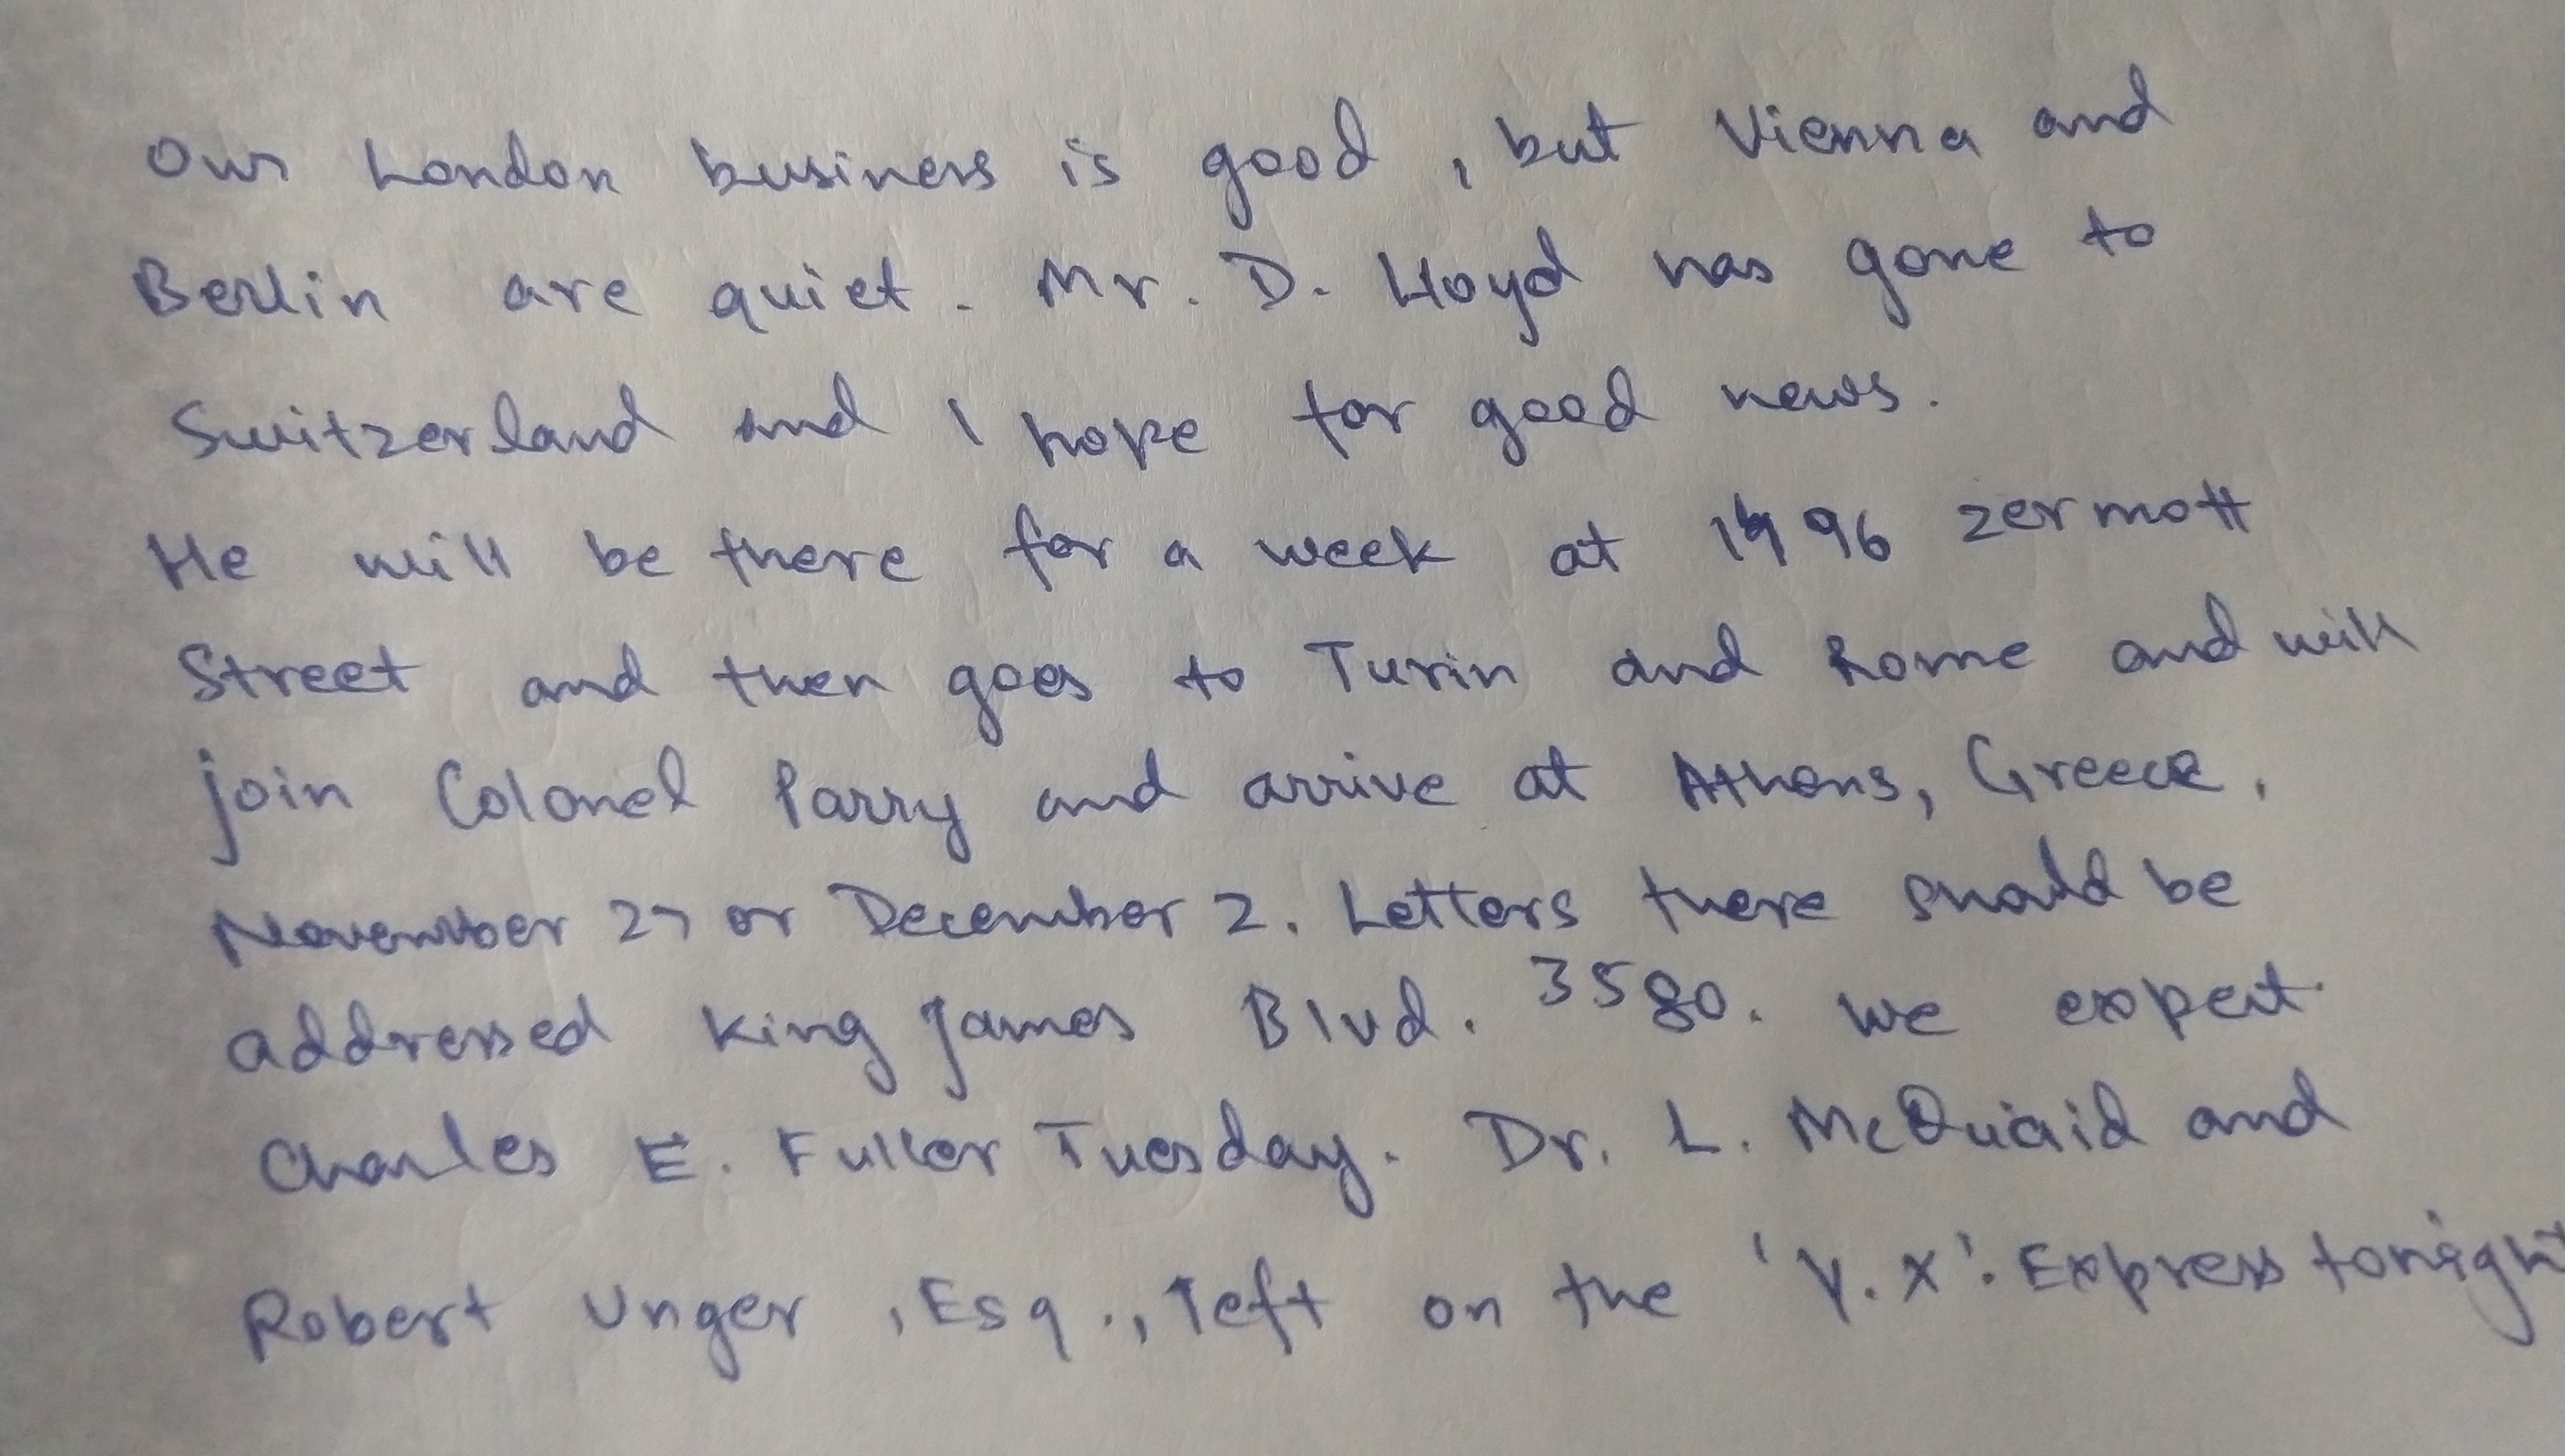 Our London business is good, but Vienna and
Berlin are quiet. Mr. D. Lloyd has gone to
Switzerland and I hope for good news.
He will be there for a week at 1496 zermott
Street and then goes to Turin and Rome and will
join Colonel Parry and arrive at Athens, Greece,
November 27 or December 2. Letters there should be
addressed King James Blvd. 3580. We expect
Charles E. Fuller Tuesday. Dr. L. McQuaid and
Robert Unger, Esq., left on the 'Y.X'. Express tonight